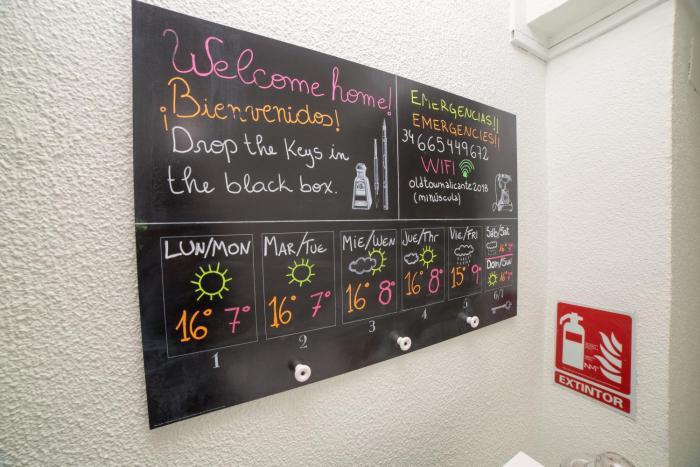 Welcome home!
¡Bienvenidos!
Drop the Keys in
the black box.
EMERGENCIAS!!
EMERGENCIES!!
34 665449672
WIFI
oldtownalicante2018
(minúscula)
LUN/MON
16° 7°
1
MAR/TUE
16° 7°
2
MIE/WEN
16° 8°
3
JUE/THR
16° 8°
4
VIE/FRI
15° 9°
5
Sáb/Sat
16° 7°
Dom/Sun
16° 7°
6/7
EXTINTOR